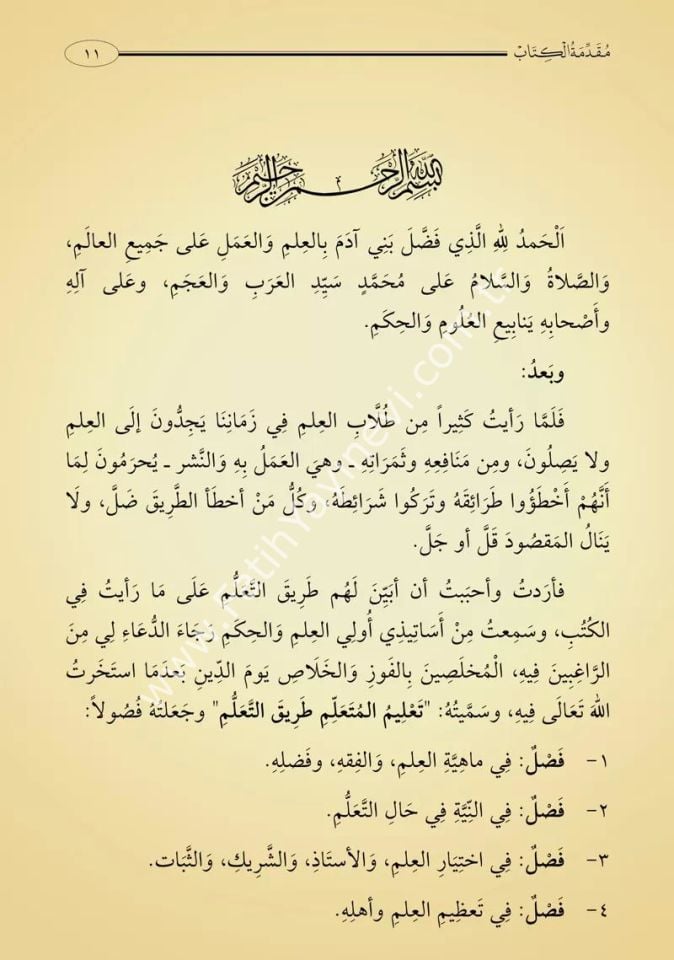 مُقَدِّمَةُ الْكِتَابِ
١١
بِسْمِ اللَّهِ الرَّحْمَنِ الرَّحِيمِ
اَلْحَمدُ لِلهِ الَّذِي فَضَّلَ بَنِي آدَمَ بِالعِلمِ وَالعَمَلِ عَلى جَمِيعِ العالَمِ،
وَالصَّلاةُ وَالسَّلامُ عَلى مُحَمَّدٍ سَيِّدِ العَرَبِ وَالعَجَمِ، وعَلى آلِهِ
وأَصْحابِهِ يَنابِيعِ العُلُومِ وَالحِكَمِ.
وبَعدُ:
فَلَمَّا رَأيتُ كَثِيراً مِن طُلَّابِ العِلمِ فِي زَمَانِنَا يَجِدُّونَ إلَى العِلمِ
ولا يَصِلُونَ، ومِن مَنَافِعِهِ وثَمَرَاتِهِ ـ وهيَ العَمَلُ بِهِ وَالنَّشر ـ يُحرَمُونَ لِمَا
أَنَّهُمْ أَخْطَؤُوا طَرائِقَهُ وتَرَكُوا شَرائِطَهُ، وكُلُّ مَنْ أخطَأ الطَّرِيقَ ضَلَّ، ولَا
يَنَالُ المَقصُودَ قَلَّ أو جَلَّ.
فأرَدتُ وأحبَبتُ أن أبَيِّنَ لَهُم طَرِيقَ التَّعَلُّمِ عَلَى مَا رَأيتُ فِي
الكُتُبِ، وسَمِعتُ مِنْ أَسَاتِيذِي أُولِي العِلمِ وَالحِكَمِ رَجَاءَ الدُّعَاءِ لِي مِنَ
الرَّاغِبِينَ فِيهِ، الْمُخلَصِينَ بِالفَوزِ وَالخَلَاصِ يَومَ الدِّينِ بَعدَمَا استَخَرتُ
اللهَ تَعَالَى فِيهِ، وسَمَّيتُهُ: "تَعْلِيمُ المُتَعَلِّمِ طَرِيقَ التَّعَلُّمِ" وجَعَلتُهُ فُصُولاً:
١- فَصْلٌ: فِي ماهِيَّةِ العِلمِ، وَالفِقهِ، وفَضلِهِ.
٢- فَصْلٌ: فِي النِّيَّةِ فِي حَالِ التَّعَلُّمِ.
٣- فَصْلٌ: فِي اختِيَارِ العِلمِ، وَالأستَاذِ، وَالشَّرِيكِ، وَالثَّبَات.
٤- فَصْلٌ: فِي تَعظِيمِ العِلمِ وأهلِهِ.
www.FatihYayinevi.com.tr